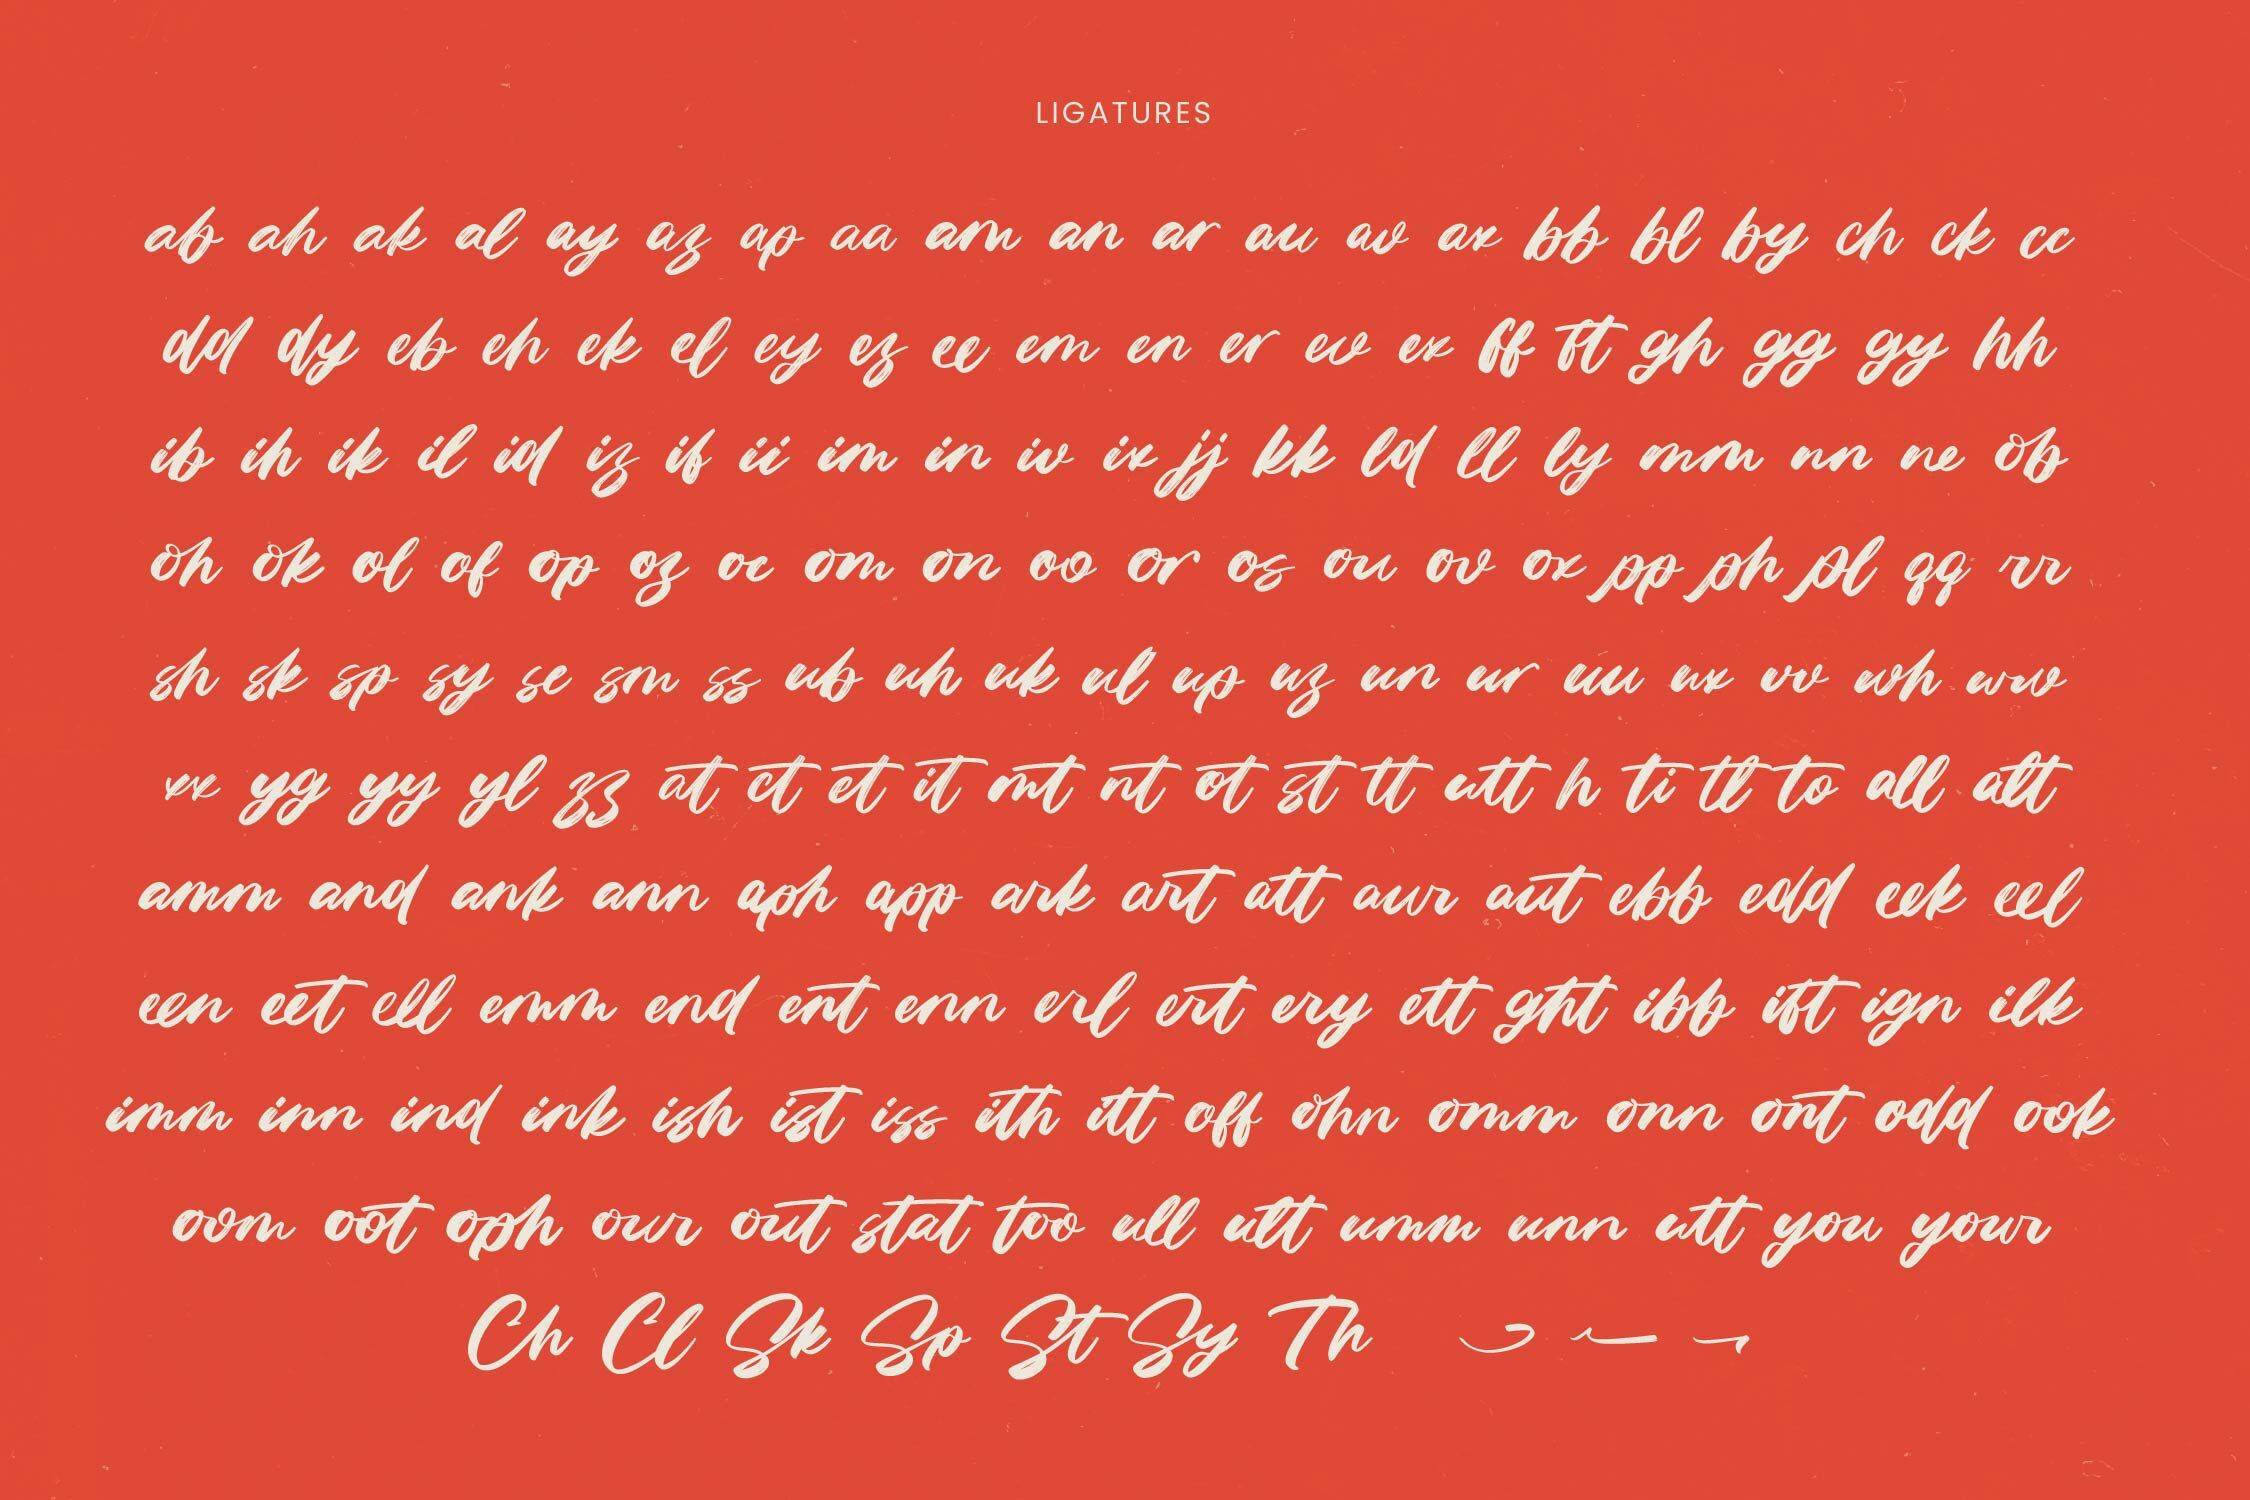 LIGATURES
ab ah ak al ay az ap aa am an ar au av ax bb bl by ch ck cc
dd dy eb eh ek el ey ez ee em en er ev ex ff ft gh gg gy hh
ib ih ik il id iz if ii im in iv ix jj kk ld ll ly mm nn ne ob
oh ok ol of op oz oc om on oo or os ou ov ox pp ph pl qq rr
sh sk sp sy se sm ss ub uh uk ul up uz un ur uu ux vv wh ww
xx yg yy yl zz at ct et it mt nt ot st tt utt h ti tl to all alt
amm and ank ann aph app ark art att aur aut ebb edd eek eel
een eet ell emm end ent enn erl ert ery ett ght ibb ift ign ilk
imm inn ind ink ish ist iss ith itt off ohn omm onn ont odd ook
oom oot oph our out stat too ull ult umm unn utt you your
Ch Cl Sk Sp St Sy Th